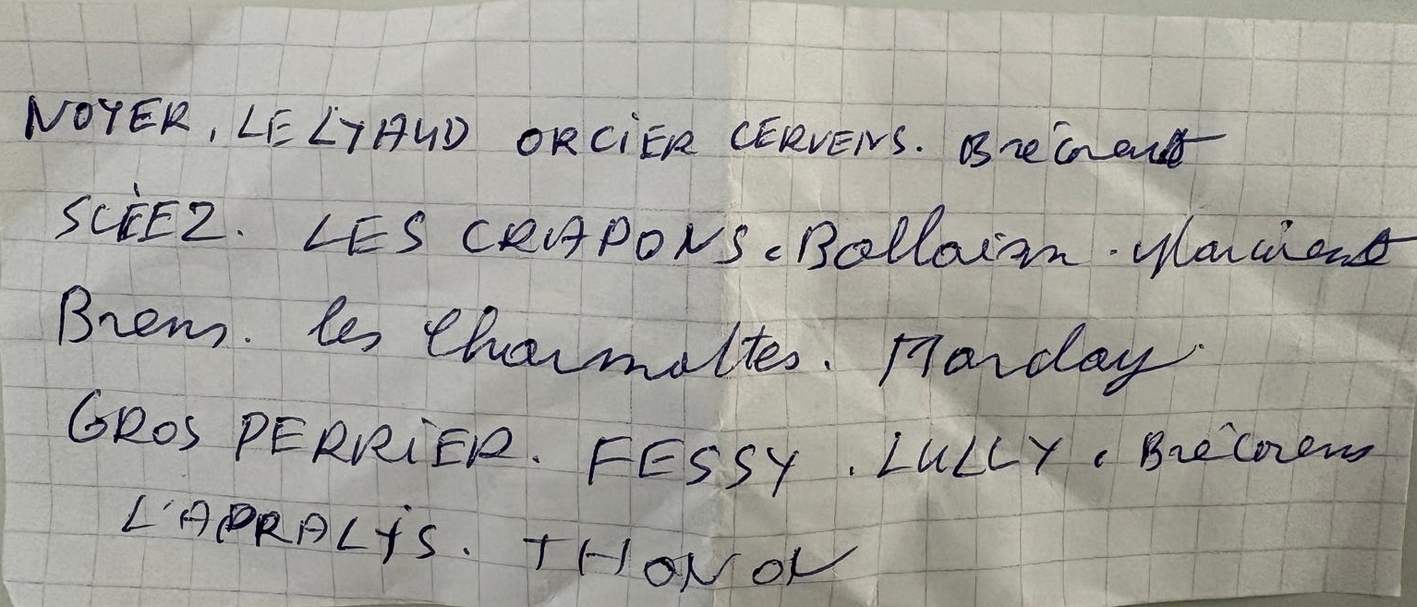 NOYER. LE LYAUD ORCIER CERVENS. Brécorent
SCÈEZ. LES CRAPONS. Ballaison. Marcirent
Brens. les Charmottes. Marclay.
GROS PERRIER. FESSY. LULLY. Brécorens
L'APRALYS. THONON